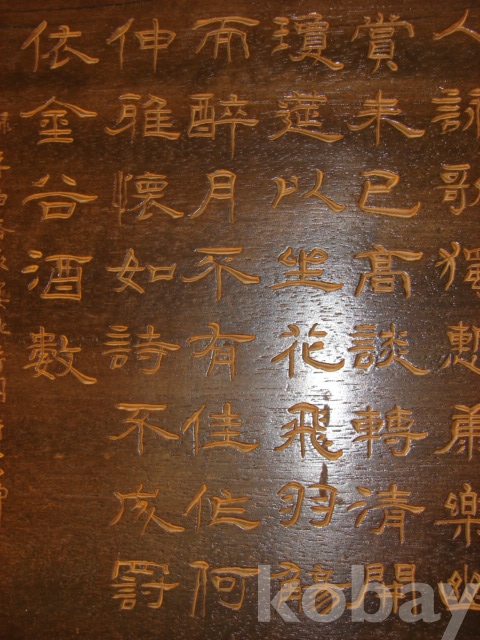 人詠歌獨慙康樂幽
賞未已高談轉清開
瓊筵以坐花飛羽觴
而醉月不有佳作何
伸雅懷如詩不成罰
依金谷酒數
kobay